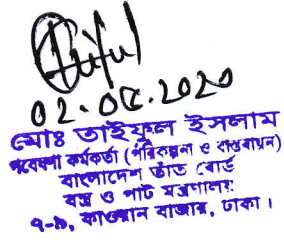 02.08.2020
মোঃ তাইফুল ইসলাম
গবেষণা কর্মকর্তা (পরিকল্পনা ও বাস্তবায়ন)
বাংলাদেশ তাঁত বোর্ড
বস্ত্র ও পাট মন্ত্রণালয়
৭-৯, কাওরান বাজার, ঢাকা।